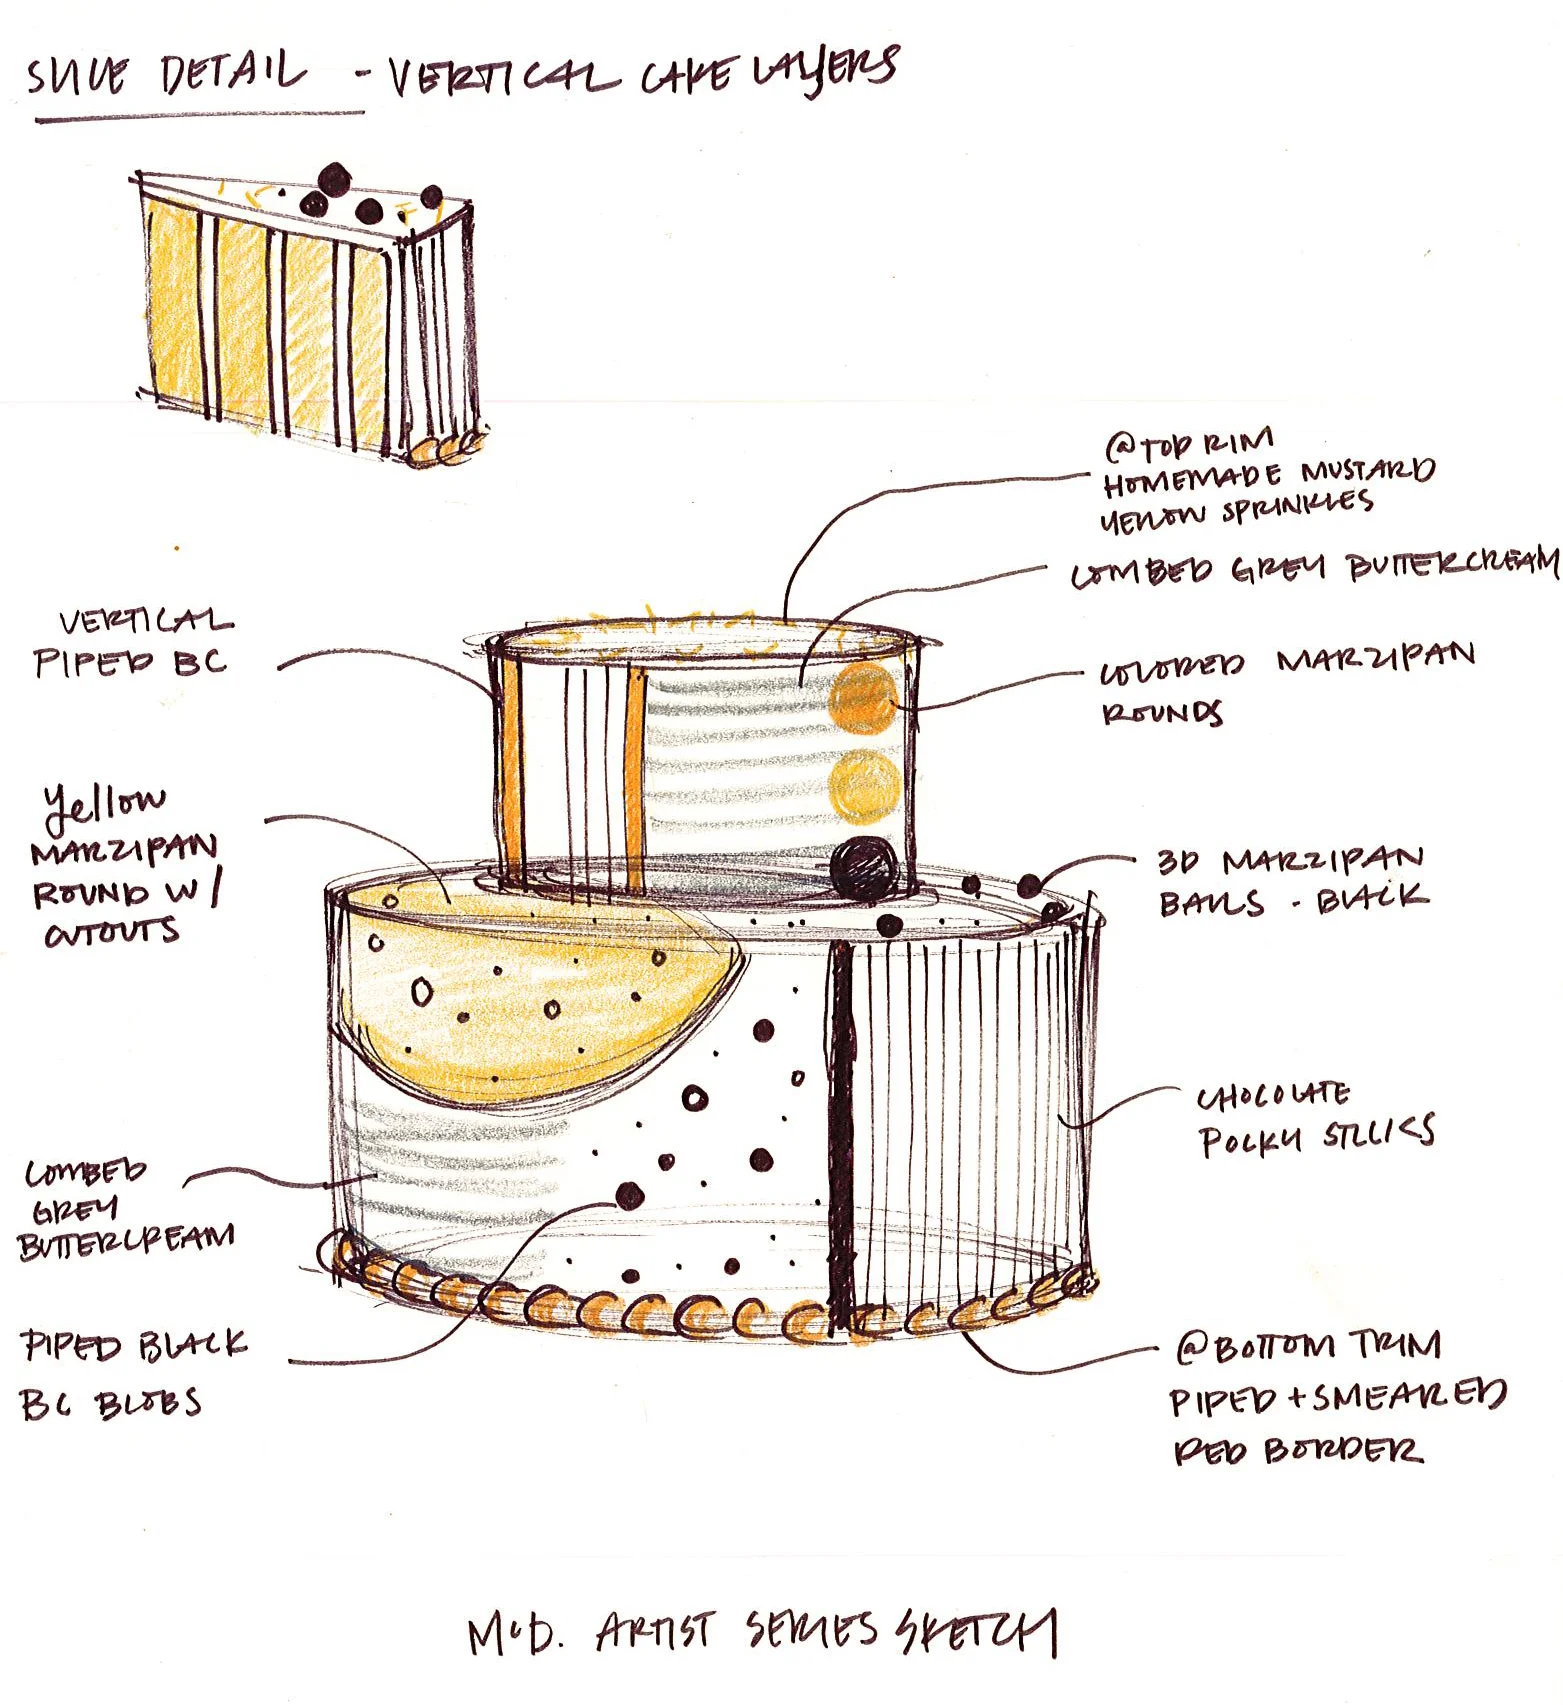 SLICE DETAIL - VERTICAL CAKE LAYERS
@ TOP RIM
HOMEMADE MUSTARD
YELLOW SPRINKLES
COMBED GREY BUTTERCREAM
VERTICAL
PIPED BC
COLORED MARZIPAN
ROUNDS
Yellow
MARZIPAN
ROUND W/
CUTOUTS
3D MARZIPAN
BALLS - BLACK
CHOCOLATE
POCKY STICKS
COMBED
GREY
BUTTERCREAM
PIPED BLACK
BC BLOBS
@ BOTTOM TRIM
PIPED + SMEARED
RED BORDER
ARTIST SERIES SKETCH